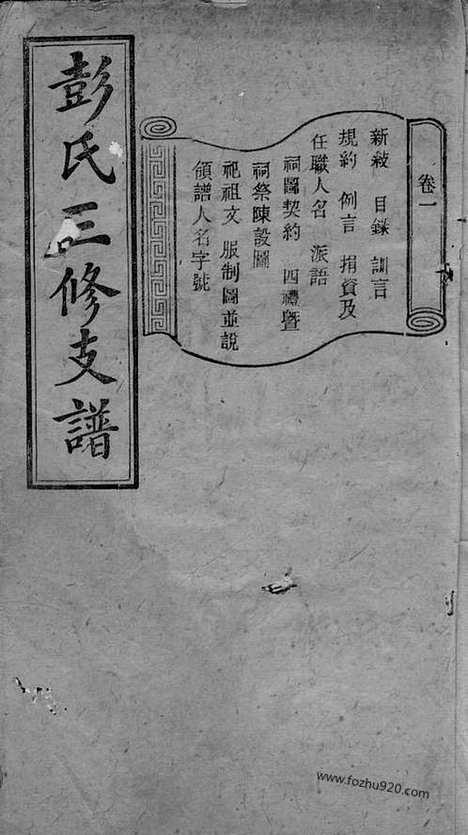 彭氏三修支譜
卷一
新敍 目錄 訓言
規約 例言 捐資及
任職人名 派語
祠圖契約 四禮暨
祠祭陳設圖
祀祖文 服制圖並說
領譜人名字號
www.fozhu920.com